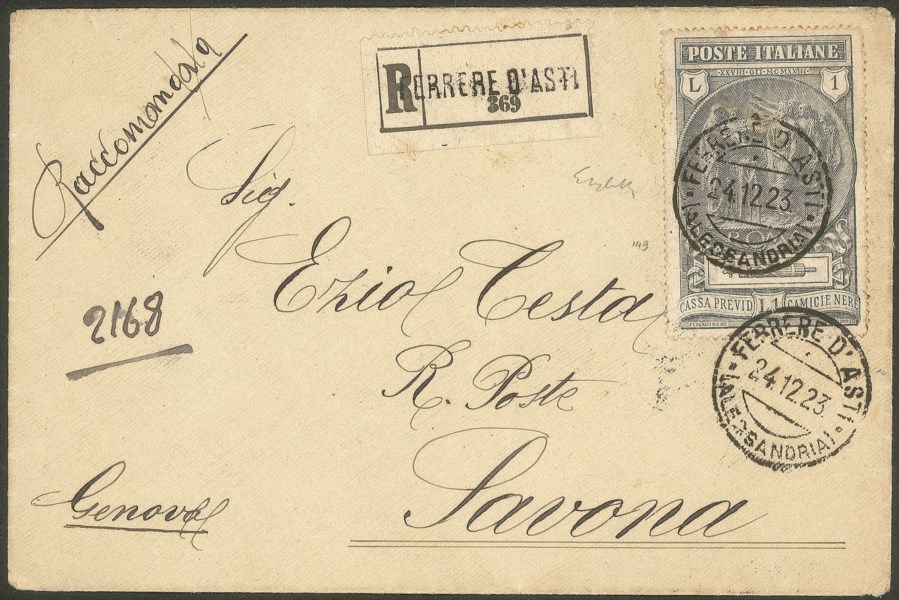 Raccomandata
R
FERRERE D'ASTI
369
POSTE ITALIANE
XXVIII-OTT-MCMXXIII
L 1
FERRERE D'ASTI
24.12.23
(ALESSANDRIA)
CASSA PREVID L.1 CAMICIE NERE
Sig.
Ezio Testa
149
2168
R. Poste
FERRERE D'ASTI
24.12.23
(ALESSANDRIA)
Genova
Savona